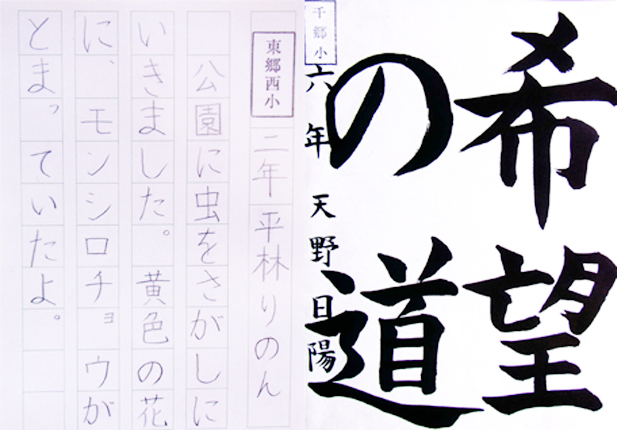 希望
の道
千郷小
六年 天野日陽
東郷西小
二年 平林りのん
公園に虫をさがしに
いきました。黄色の花
に、モンシロチョウが
とまっていたよ。